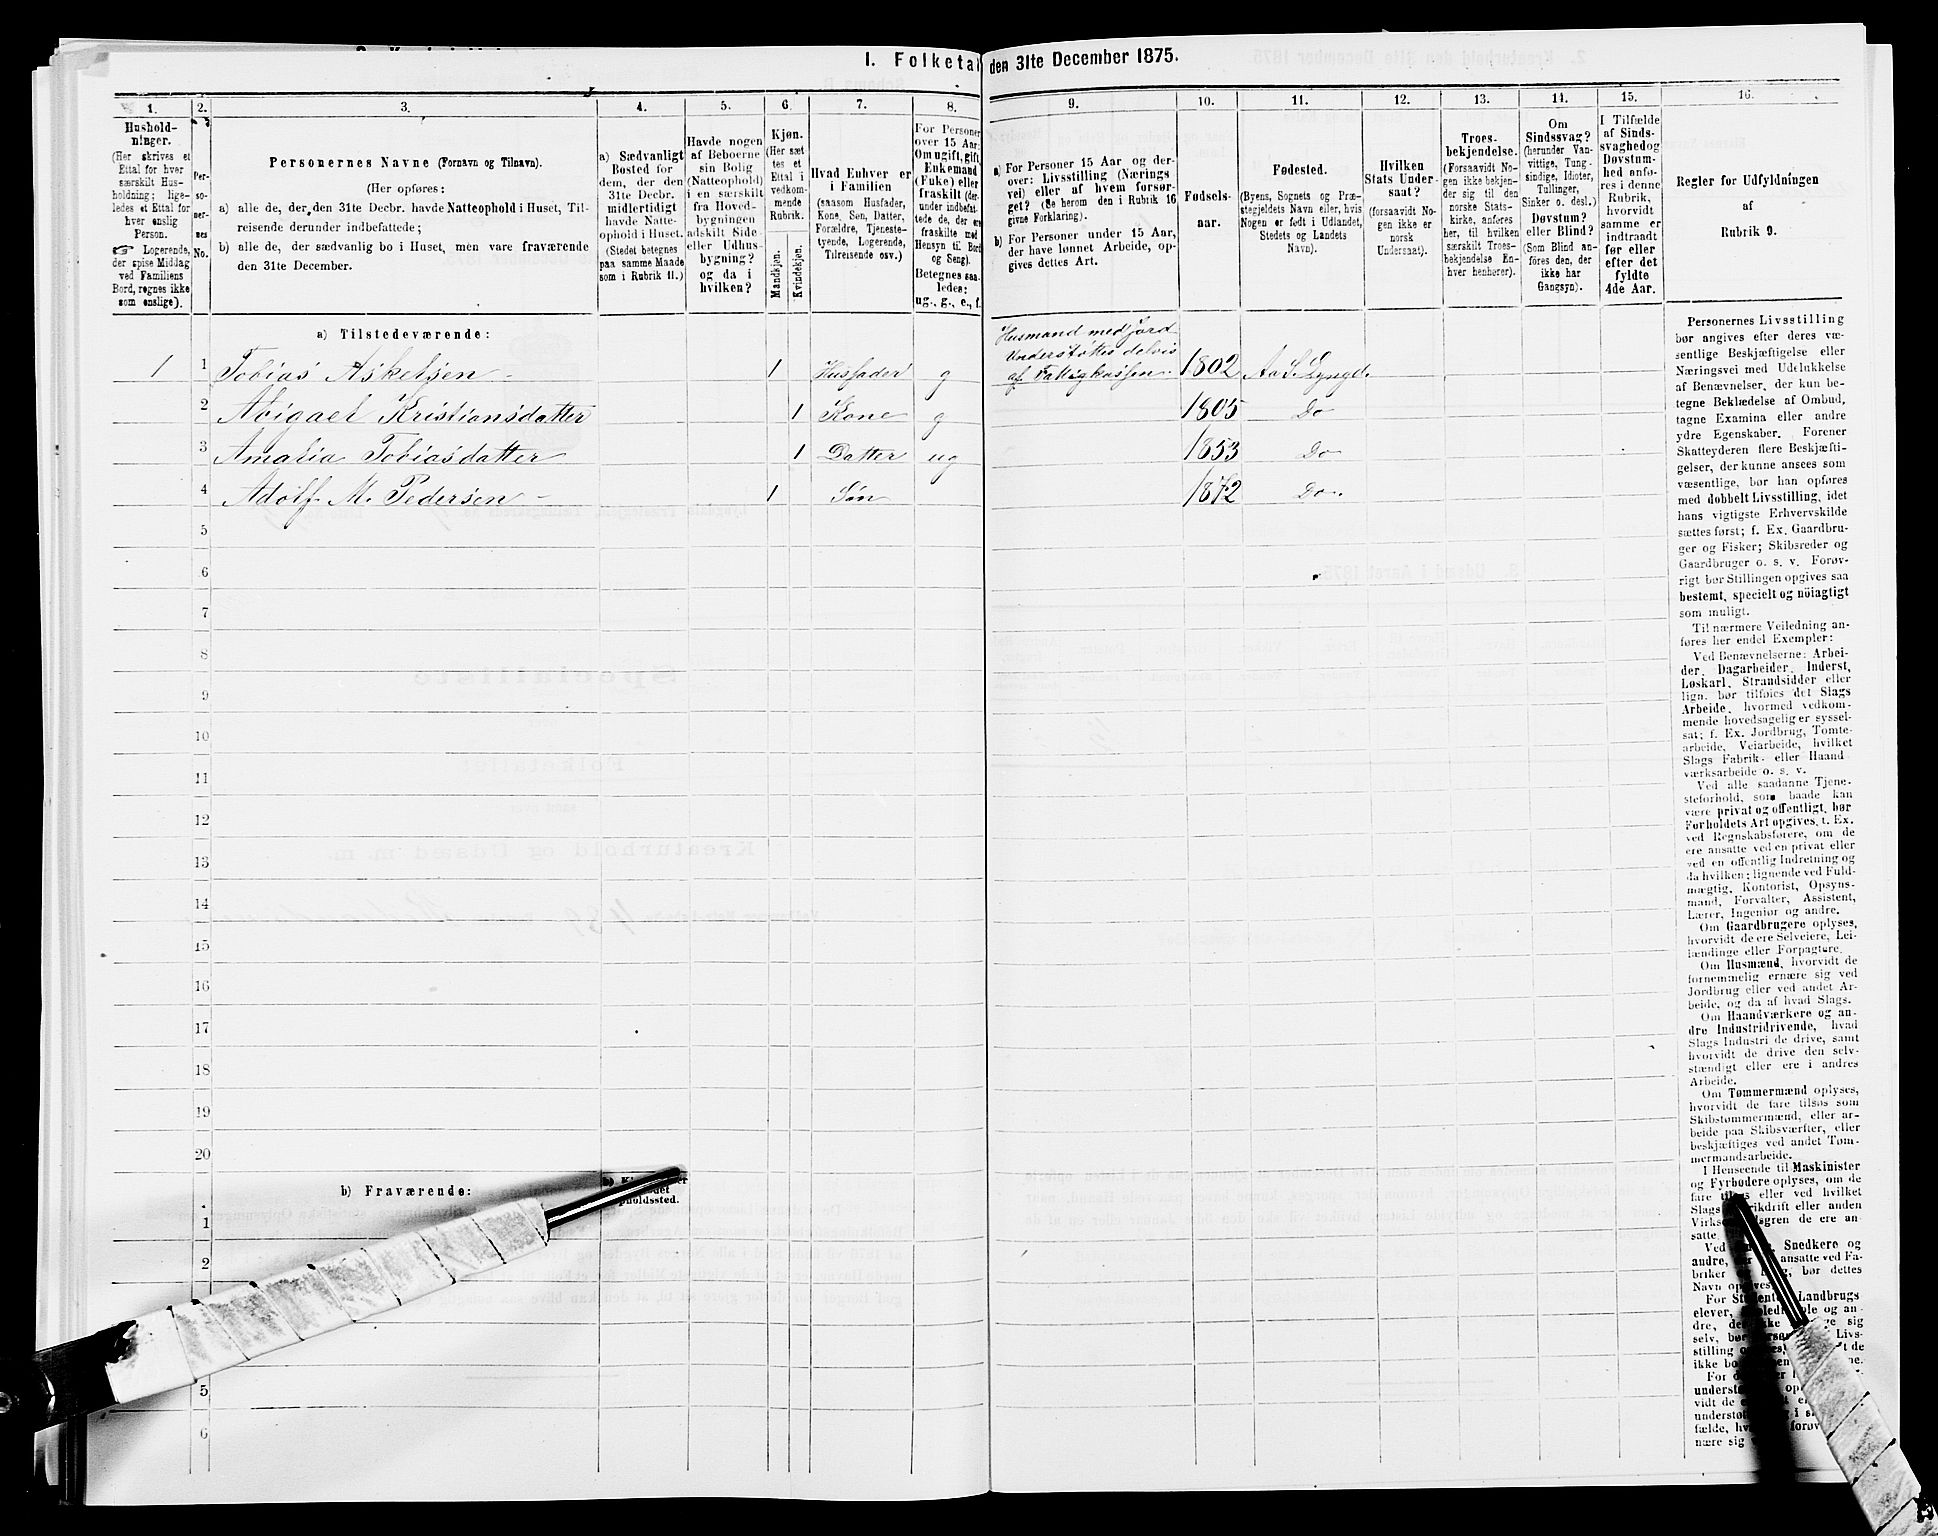 I. Folketal den 31te December 1875.
1.
Hushold-
ninger.
(Her skrives et
Ettal for hver
særskilt Hus-
holdning; lige-
ledes et Ettal for
hver enslig
Person.
☞ Logerende,
der spise Middag
ved Familiens
Bord, regnes ikke
som enslige).
2.
Per-
so-
ner-
nes
No.
3.
Personernes Navne (Fornavn og Tilnavn).
(Her opføres:
a) alle de, der den 31te Decbr. havde Natteophold i Huset, Til-
reisende derunder indbefattede;
b) alle de, der sædvanlig bo i Huset, men vare fraværende
den 31te December.
4.
a) Sædvanligt
Bosted for
dem, der den
31te Decbr.
midlertidigt
havde Natte-
ophold i Huset.
(Stedet betegnes
paa samme Maade
som i Rubrik 11.)
5.
Havde nogen
af Beboerne
sin Bolig
(Natteophold)
i en særskilt
fra Hoved-
bygningen
adskilt Side-
eller Udhus-
bygning?
og da i
hvilken?
6.
Kjøn.
(Her sæt-
tes et
Ettal i
vedkom-
mende
Rubrik.
Mandkjøn.
Kvindekjøn.
7.
Hvad Enhver er
i Familien
(saasom Husfader,
Kone, Søn, Datter,
Forældre, Tjeneste-
tyende, Logerende,
Tilreisende osv.)
8.
For Personer
over 15 Aar:
Om ugift, gift,
Enkemand
(Fuke) eller
fraskilt (der-
under indbefat-
tede de, der ere
fraskilte med
Hensyn til Bord
og Seng).
Betegnes saa-
ledes:
ug., g., e., f.
9.
a) For Personer 15 Aar og der-
over: Livsstilling (Nærings-
vei) eller af hvem forsør-
get? (Se herom den i Rubrik 16
givne Forklaring).
b) For Personer under 15 Aar,
der have lønnet Arbeide, op-
gives dettes Art.
10.
Fødsels-
aar.
11.
Fødested.
(Byens, Sognets og Præ-
stegjeldets Navn eller, hvis
Nogen er født i Udlandet,
Stedets og Landets
Navn).
12.
Hvilken
Stats Under-
saat?
(forsaavidt No-
gen ikke er
norsk
Undersaat).
13.
Troes-
bekjendelse.
(Forsaavidt No-
gen ikke bekjen-
der sig til den
norske Stats-
kirke, anføres
her, til hvilken
særskilt Troes-
bekjendelse En-
hver henhører).
14.
Om
Sindssvag?
(herunder Van-
vittige, Tung-
sindige, Idioter,
Tullinger,
Sinker o. desl.)
Døvstum?
eller Blind?
(Som Blind an-
føres den, der
ikke har
Gangsyn).
15.
I Tilfælde
af Sinds-
svaghed og
Døvstum-
hed anfø-
res i denne
Rubrik,
hvorvidt
samme er
indtraadt
før eller
efter det
fyldte
4de Aar.
16.
Regler for Udfyldningen
af
Rubrik 9.
a) Tilstedeværende:
1 1 Tobias Asketsen 1 Husfader g Husmand med Jord
Understøttes delvis
af Fattigkassen. 1802 A. S. Lyngd.
2 Abigael Kristiansdatter 1 Kone g 1805 Do
3 Amalia Tobiasdatter 1 Datter ug 1853 Do
4 Adolf M. Pedersen 1 Søn 1872 Do.
5
6
7
8
9
10
11
12
13
14
15
16
17
18
19
20
b) Fraværende:
1
2
5
6
Personernes Livsstilling
bør angives efter deres væ-
sentlige Beskjæftigelse eller
Næringsvei med Udelukkelse
af Benævnelser, der kun be-
tegne Beklædelse af Ombud,
tagne Examina eller andre
ydre Egenskaber. Forener
Skatteyderen flere Beskjæfti-
gelser, der kunne ansees som
væsentlige, bør han opføres
med dobbelt Livsstilling, idet
hans vigtigste Erhvervskilde
sættes først; f. Ex. Gaardbru-
ger og Fisker; Skibsreder og
Gaardbruger o. s. v. Forøv-
rigt bør Stillingen opgives saa
bestemt, specielt og nöiagtigt
som muligt.
Til nærmere Veiledning an-
føres her endel Exempler:
Ved Benævnelserne: Arbei-
der, Dagarbeider, Inderst,
Løskarl, Strandsidder eller
lign. bør tilføies det Slags
Arbeide, hvormed vedkom-
mende hovedsagelig er syssel-
sat; f. Ex. Jordbrug, Tomte-
arbeide, Veiarbeide, hvilket
Slags Fabrik- eller Haand-
værksarbeide o. s. v.
Ved alle saadanne Tjene-
steforhold, som baade kan
være privat og offentligt, bør
Forholdets Art opgives, t. Ex.
ved Regnskabsførere, om de
ere ansatte ved en privat eller
ved en offentlig Indretning og
da hvilken; lignende ved Fuld-
mægtig, Kontorist, Opsyns-
mand, Forvalter, Assistent,
Lærer, Ingeniør og andre.
Om Gaardbrugere oplyses,
hvorvidt de ere Selveiere, Lei-
lændinge eller Forpagtere.
Om Husmænd, hvorvidt de
fornemmelig ernære sig ved
Jordbrug eller ved andet Ar-
beide, og da af hvad Slags.
Om Haandværkere og an-
dre Industridrivende, hvad
Slags Industri de drive, samt
hvorvidt de drive den selv-
stændigt eller ere i andres
Arbeide.
Om Tømmermænd oplyses,
hvorvidt de fare tilsøs som
Skibstømmermænd, eller ar-
beide paa Skibsværfter, eller
beskjæftiges ved andet Tøm-
mermandsarbeide.
I Henseende til Maskinister
og Fyrbødere oplyses, om de
fare tilsøs eller ved hvilket
Slags